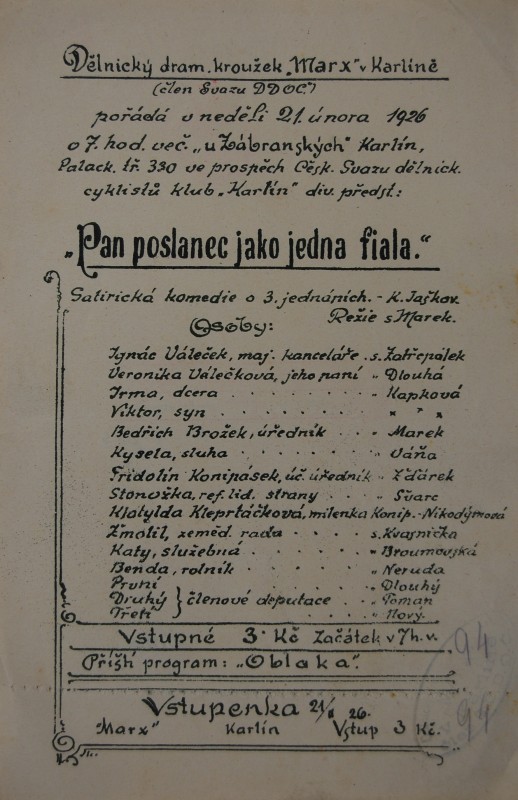 Dělnický dram. kroužek „Marx" v Karlíně
(člen Svazu DDOČ)
pořádá v neděli 21. února 1926
o 7. hod. več. „u Zábranských" Karlín,
Palack. tř. 330 ve prospěch Česk. Svazu dělnick.
cyklistů klub „Karlín" div. předst:
„Pan poslanec jako jedna fiala."
Satirická komedie o 3. jednáních. - K. Jaškov.
Režie s Marek.
Osoby:
Ignác Váleček, maj. kanceláře . s. Zatřepálek
Veronika Válečková, jeho paní „ Dlouhá
Irma, dcera . . . . . . . „ Kapková
Viktor, syn . . . . . . . " " "
Bedřich Brožek, úředník . . „ Marek
Kysela, sluha . . . . . . „ Váňa
Fridolín Konipásek, úč. úředník „ Žďárek
Stonožka, ref. lid. strany . . . „ Švarc
Klotylda Kleprťáčková, milenka Konip. - Nikodýmová
Žmolil, zeměd. rada . . . . s. Kvasnička
Katy, služebná . . . . . „ Broumovská
Benda, rolník . . . . . „ Neruda
První . . . „ Dlouhý
Druhý } členové deputace . . „ Toman
Třetí . . . „ Nový.
Vstupné 3· Kč Začátek v 7 h. v.
Příští program: „Oblaka".
94
Vstupenka 21/II 26.
94
"Marx" Karlín Vstup 3 Kč.